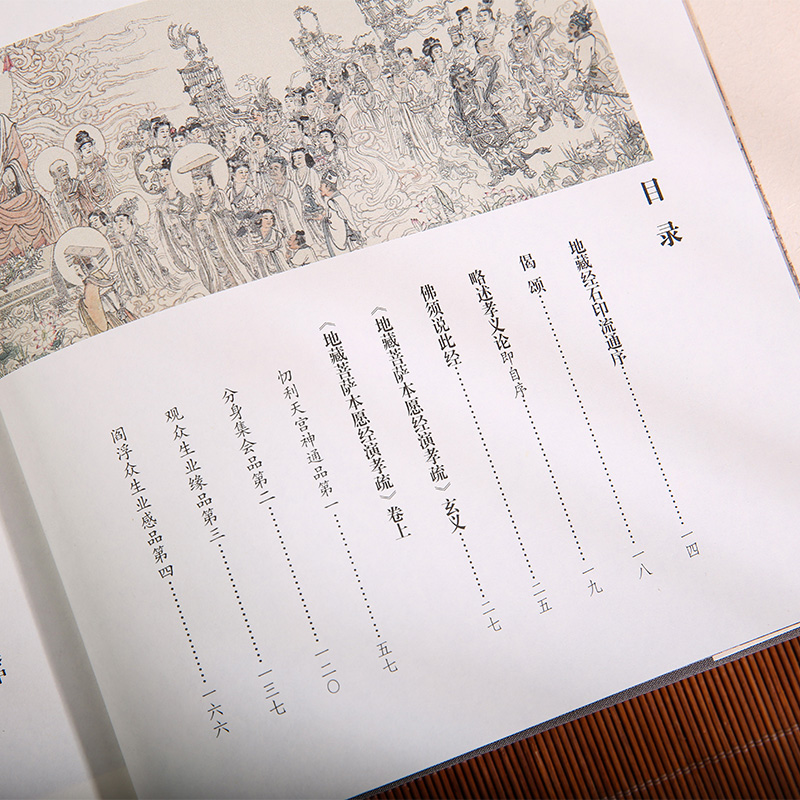 目录
地藏经石印流通序……………一四
偈颂……………一八
略述孝义论即自序……………一九
佛须说此经……………二五
《地藏菩萨本愿经演孝疏》玄义……………二七
《地藏菩萨本愿经演孝疏》卷上
忉利天宫神通品第一……………五七
分身集会品第二……………一二〇
观众生业缘品第三……………一三七
阎浮众生业感品第四……………一六六